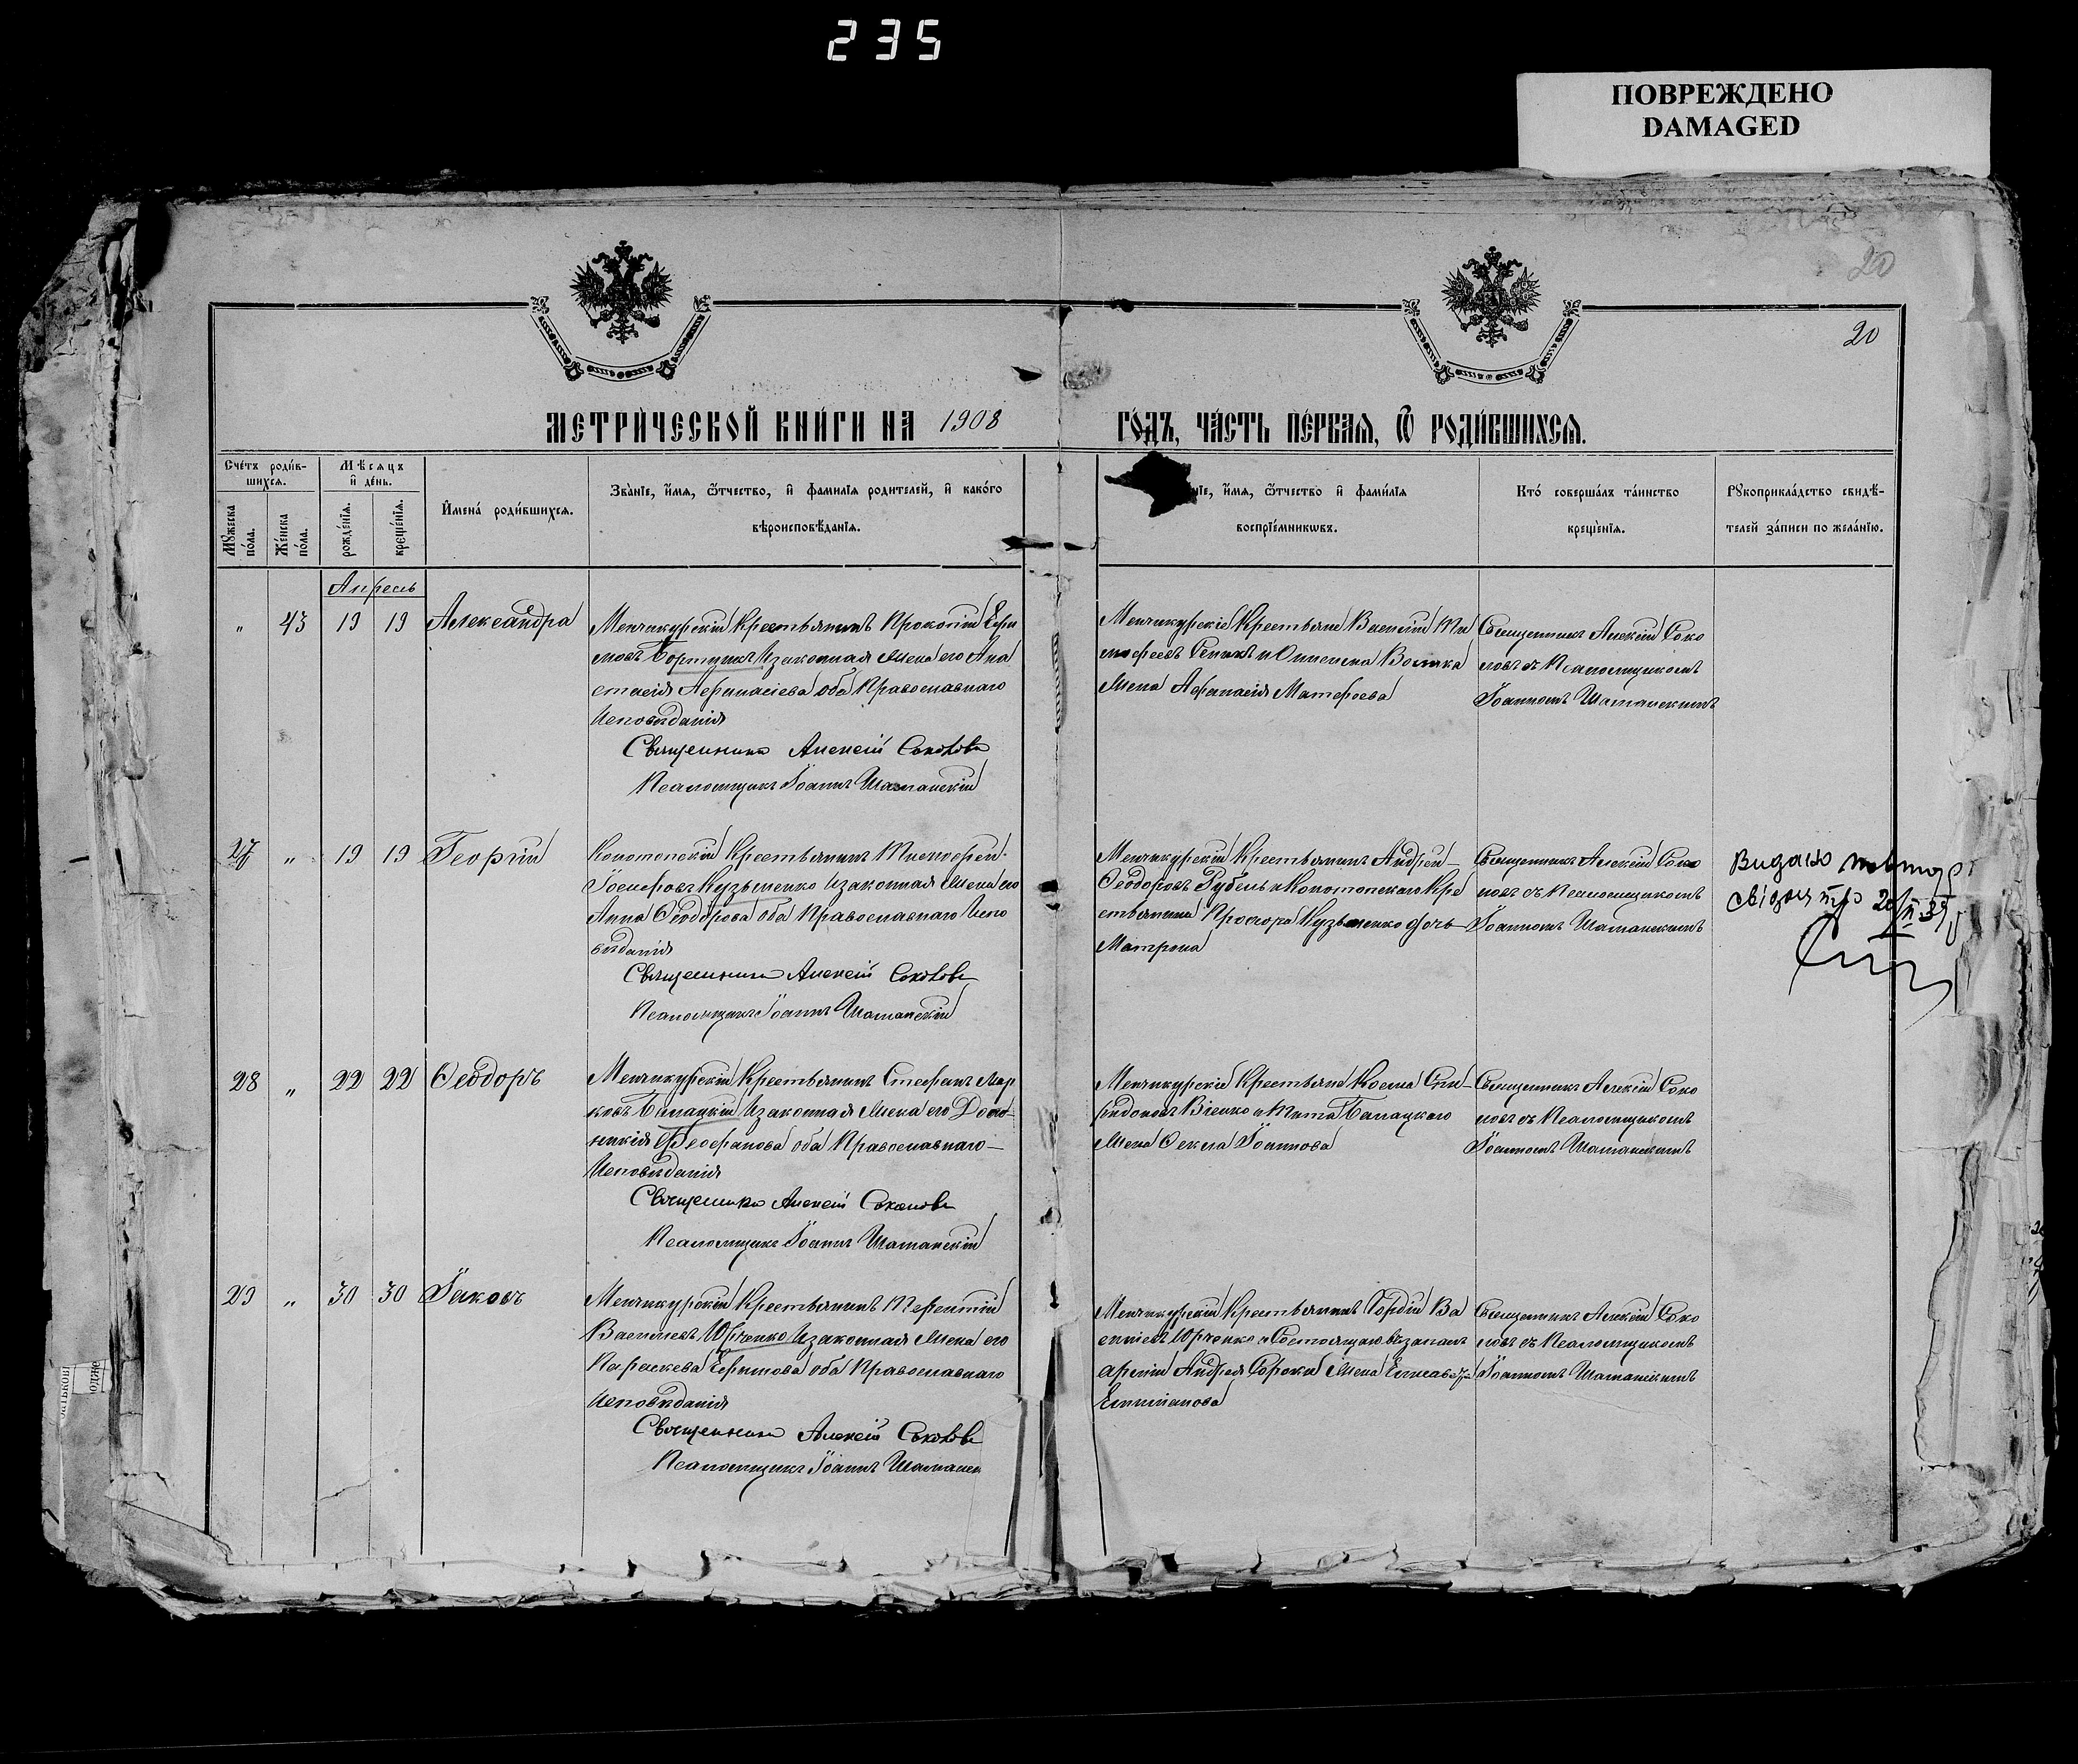 235
ПОВРЕЖДЕНО
DAMAGED
20
20
МЕТРИ́ЧЕСКОЙ КНИ́ГИ НА 1908 ГО́ДЪ, ЧА́СТЬ ПЕ́РВАѦ, Ѿ РОДИ́ВШИХСѦ.
Сче́тъ роди́в-
шихсѧ.
Мꙋжеска по́ла.
Же́нска по́ла.
Мѣсѧцъ
и҆ де́нь.
рожде́нїѧ.
креще́нїѧ.
И҆мена́ роди́вшихсѧ.
Зва́нїе, и҆́мѧ, ѻ҆́тчество, и҆ фами́лїѧ роди́телей, и҆ како́гѡ
вѣроисповѣ́данїѧ.
нїе, и҆́мѧ, ѻ҆́тчество и҆ фами́лїѧ
воспрїе́мникѡвъ.
Кто́ соверша́лъ та́инство
креще́нїѧ.
Рꙋкоприкла́дство свидѣ́-
телей за́писи по жела́нїю.
Апрель
" 43 19 19 Александра
Менчикурскій Крестьянинъ Прокопій Ефи
мовъ Бортникъ и законная жена его Ана
стасія Афанасіева оба Православнаго
Исповѣданія
Священникъ Алексій Соколовъ
Псаломщикъ Іоаннъ Шаманскій
Менчикурскіе Крестьяне Василій Ти
мофеевъ
жена Афанасія Матфеева
Священникъ Алексій Соко
ловъ съ Псаломщикомъ
Іоанномъ Шаманскимъ
27 " 19 19 Георгій
Конотопскій Крестьянинъ Тимофей
Іосифовъ Кузьменко и законная жена его
Анна Ѳеодорова оба Православнаго Испо
вѣданія
Священникъ Алексій Соколовъ
Псаломщикъ Іоаннъ Шаманскій
Менчикурскій Крестьянинъ Андрей
Ѳеодоровъ Рубель и Конотопскаго Кре
стьянина Прохора Кузьменко дочь
Матрона
Священникъ Алексій Соко
ловъ съ Псаломщикомъ
Іоанномъ Шаманскимъ
Видано повтор
свідоц
28 " 22 22 Ѳеодоръ
Менчикурскій Крестьянинъ Стефанъ Мар
ковъ Балацкій и законная жена его Дом
никія Ѳеофанова оба Православнаго
Исповѣданія
Священникъ Алексій Соколовъ
Псаломщикъ Іоаннъ Шаманскій
Менчикурскіе Крестьяне Косма Спи
ридоновъ Віенко и Тита Балацкаго
жена Ѳекла Іоаннова
Священникъ Алексій Соко
ловъ съ Псаломщикомъ
Іоанномъ Шаманскимъ
29 " 30 30 Іаковъ
Менчикурскій Крестьянинъ Терентій
Васильевъ Юрченко и законная жена его
Параскева Ефимова оба Православнаго
Исповѣданія
Священникъ Алексій Соколовъ
Псаломщикъ Іоаннъ Шаманск
Менчикурскій Крестьянинъ Гордій Ва
силіевъ Юрченко и Состоящаго въ запасѣ
арміи Андрея Сороки жена Елисавета
Епифанова
Священникъ Алексій Соко
ловъ съ Псаломщикомъ
Іоанномъ Шаманскимъ